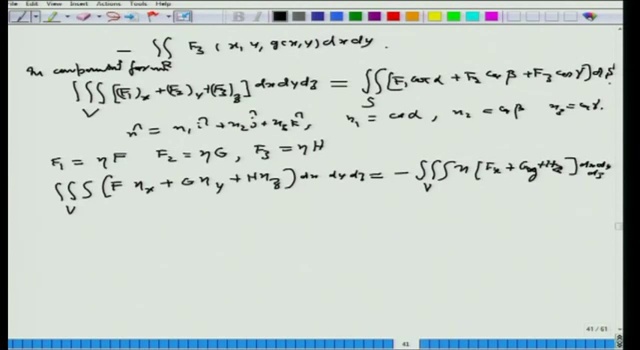 File Edit View Insert Actions Tools Help
- ∬_R F₃ (x, y, g(x,y)) dx dy.
In component form
∭_V [(F₁)_x + (F₂)_y + (F₃)_z] dx dy dz = ∬_S [F₁ cos α + F₂ cos β + F₃ cos γ] dA
n̂ = n₁ î + n₂ ĵ + n₃ k̂, n₁ = cos α, n₂ = cos β n₃ = cos γ.
F₁ = ηF F₂ = ηG, F₃ = ηH
∭_V (F η_x + G η_y + H η_z) dx dy dz = - ∭_V η [F_x + G_y + H_z] dx dy dz
41 / 61
41